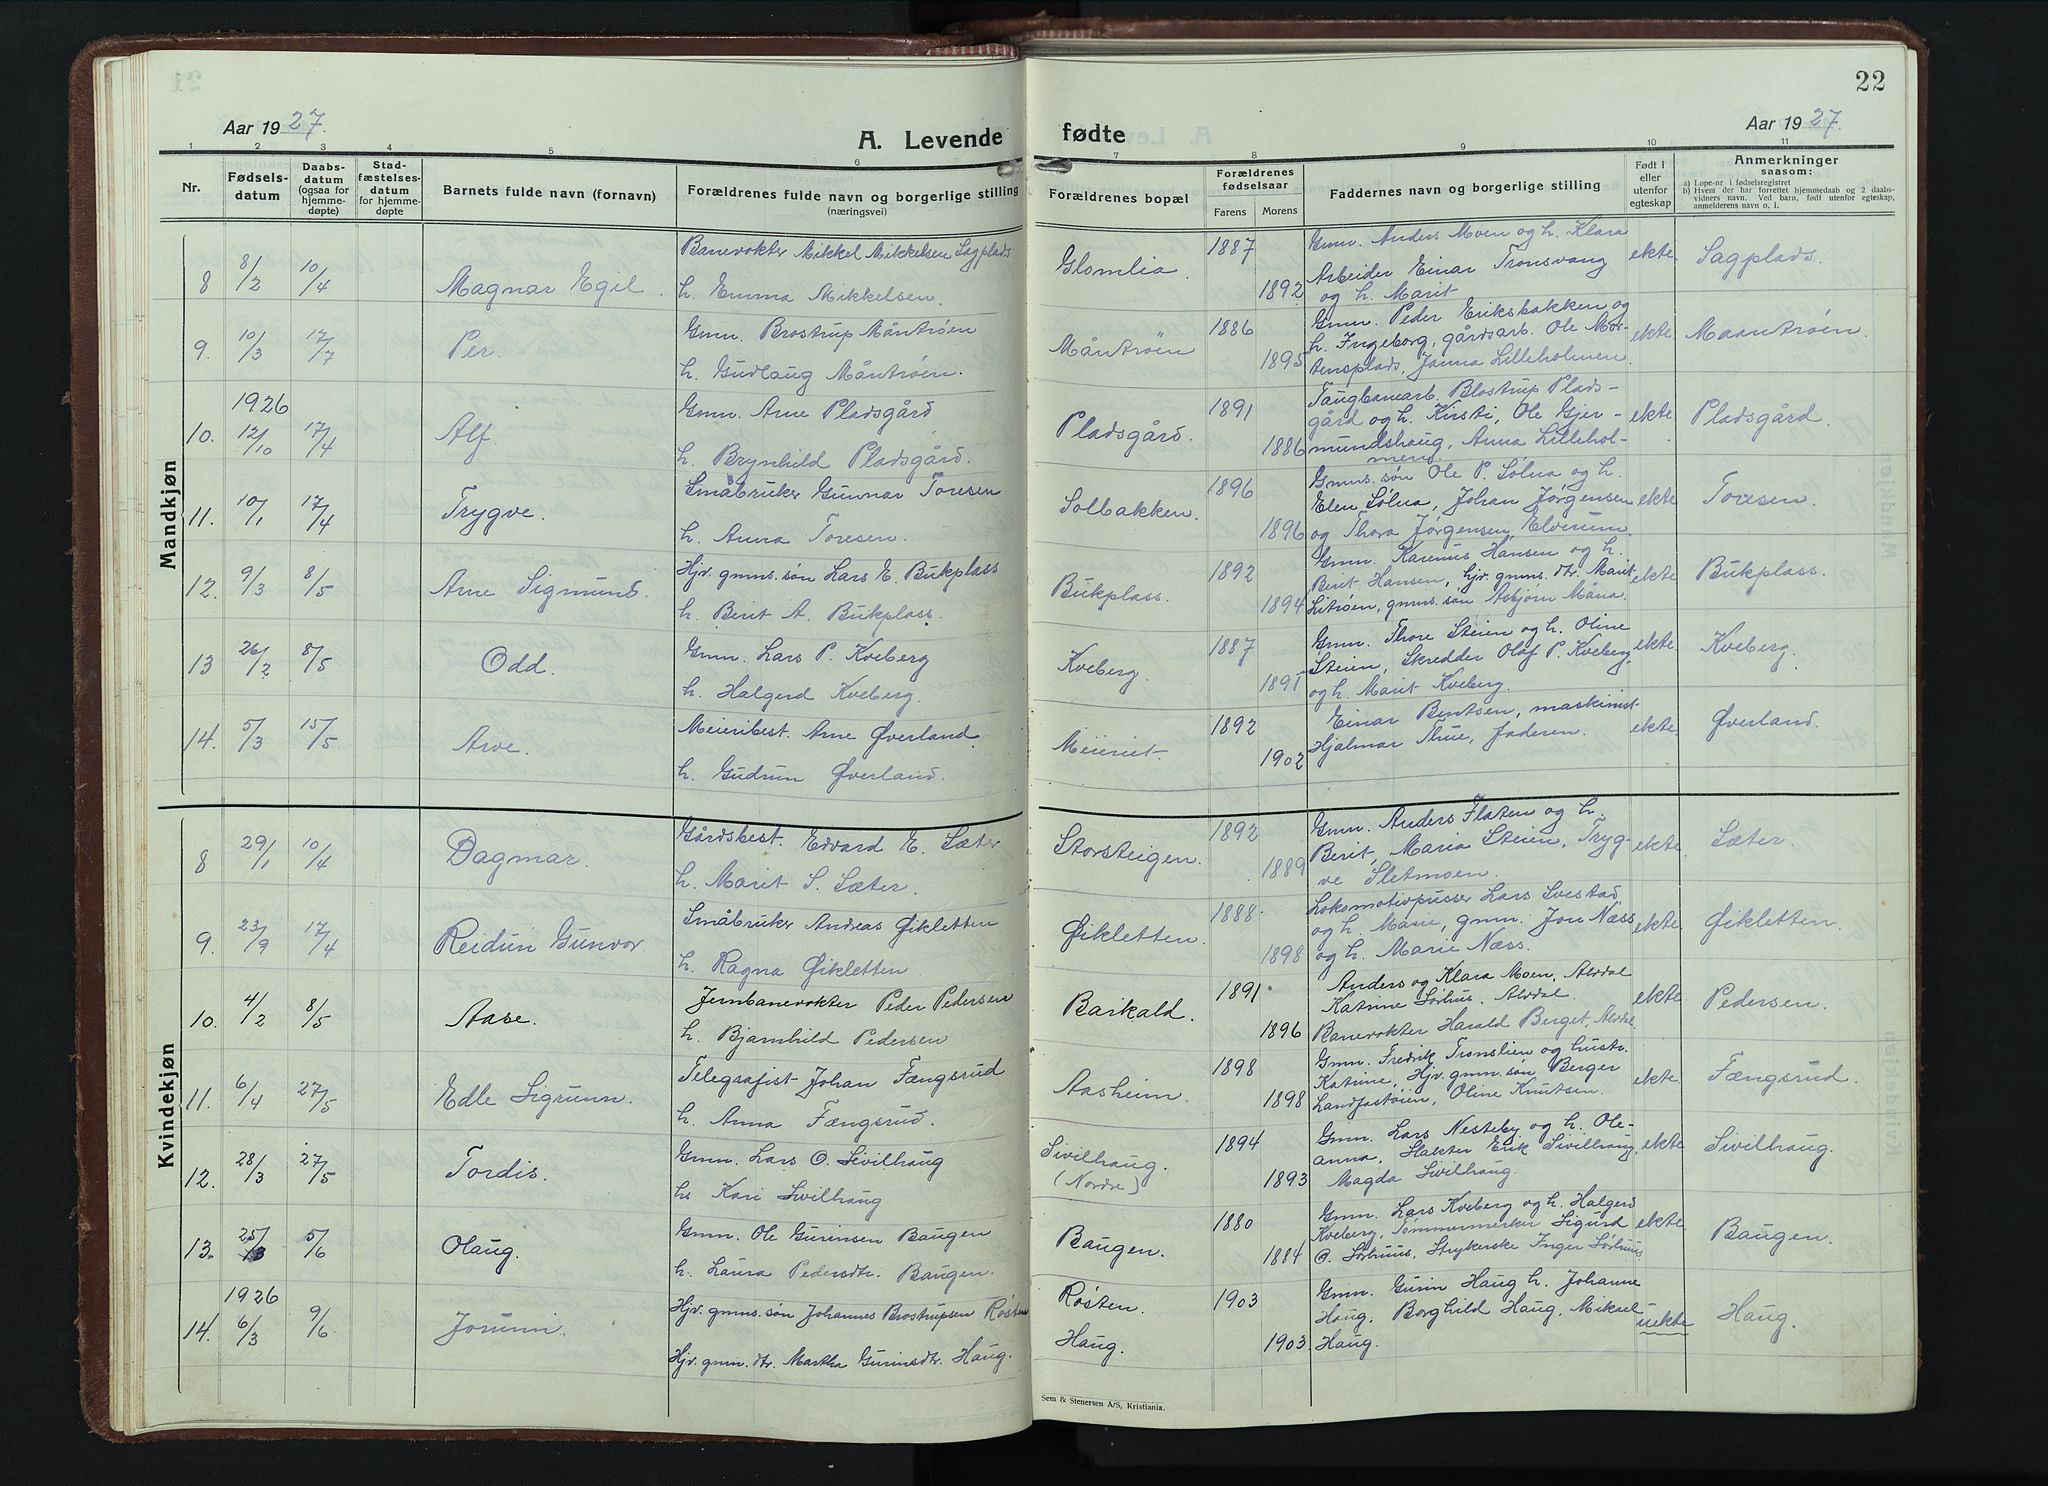 22
Aar 1927.
A. Levende
fødte
Aar 1927.
1 2 3 4 5 6 7 8 9 10 11
Nr.
Fødselsdatum
Daabsdatum (ogsaa for hjemmedøpte)
Stadfæstelsesdatum for hjemmedøpte
Barnets fulde navn (fornavn)
Forældrenes fulde navn og borgerlige stilling
(næringsvei)
Forældrenes bopæl
Forældrenes fødselsaar
Farens Morens
Faddernes navn og borgerlige stilling
Født i eller utenfor egteskap
Anmerkninger
saasom:
a) Løpe-nr. i fødselsregistret
b) Hvem der har forrettet hjemmedaab og 2 daabsvidners navn. Ved barn, født utenfor egteskap, anmelderens navn o. l.
Mandkjøn
8 8/2 10/4 Magnar Egil.
Banevokter Mikkel Mikkelsen Sagplads
h. Emma Mikkelsen.
Glomlia. 1887 1892
Gmn. Anders Moen og h. Klara
Arbeider Einar Tronsvang
og h. Marit
ekte. Sagplads.
9. 10/3 17/7 Per.
Gmn. Brostrup Måntrøen
h. Gudlaug Måntrøen.
Måntrøen 1886 1895
Gmn. Peder Eriksbakken og
h. Ingeborg, gårdsarb. Ole Mor-
tensplads, Janna Lilleholmen
ekte. Maantrøen.
10. 1926 12/10 17/4 Alf.
Gmn. Arne Pladsgård
h. Brynhild Pladsgård.
Pladsgård. 1891 1886
Taugbanearb. Blostrup Plads-
gård og h. Kirsti, Ole Gjer-
mundshaug, Anna Lillehol-
men.
ekte. Pladsgård.
11. 10/1 17/4 Trygve.
Småbruker Gunnar Toresen
h. Anna Toresen.
Solbakken. 1896 1896
Gmns. søn Ole P. Sølna og h.
Elen Sølna, Johan Jørgensen
og Thora Jørgensen, Elverum.
ekte Toresen.
12. 9/3 8/5 Arne Sigmund.
Hjv. gmns. søn Lars E. Bukplass
h. Berit A. Bukplass.
Bukplass. 1892 1894
Gmn. Karenus Hansen og h.
Berit Hansen, hjv. gmns. dtr. Marit
Litrøen, gmns. søn Asbjørn Måna.
ekte Bukplass.
13 26/2 8/5 Odd.
Gmn. Lars P. Kveberg
h. Halgerd Kveberg.
Kveberg. 1887 1895
Gmn. Thore Steien og h. Oline
Steien, Skredder Olaf P. Kveberg,
og h. Marit Kveberg.
ekte. Kveberg.
14. 5/3 15/5 Arve.
Meieribest. Arne Øverland
h. Gudrun Øverland.
Meieriet. 1892 1902
Einar Bentsen, maskinist
Hjalmar Thue, Jaderen.
ekte. Øverland.
Kvindekjøn
8 29/1 10/4 Dagmar.
Gårdsbest. Edvard E. Sæter
h. Marit S. Sæter.
Storsteigen. 1892 1889
Gmn. Anders Flaten og h.
Berit, Maria Steien, Tryg-
ve Sletmoen.
ekte. Sæter.
9. 23/9 17/4 Reidun Gunvor.
Småbruker Andreas Øikletten
h. Ragna Øikletten
Øikletten. 1888 1898
Lokomotivpusser Lars Svestad,
og h. Marie, gmn. Jon Næss
og h. Marie Næss.
ekte. Øikletten.
10. 4/2 8/5 Aase.
Jernbanevokter Peder Pedersen
h. Bjarnhild Pedersen
Barkald. 1891 1896
Anders og Klara Moen, Alvdal
Katrine Sørhus, Alvdal.
Banevokter Harald Berget, Alvdal
ekte Pedersen.
11. 6/4 27/5 Edle Sigrunn.
Telegrafist Johan Fængsrud
h. Anna Fængsrud.
Aasheim. 1898 1898
Gmn. Fredrik Tronslien og hustr.
Katrine, Hjv. gmn. søn Berger
Landfastøien, Oline Knutsen.
ekte. Fængsrud.
12. 28/3 27/5 Tordis.
Gmn. Lars O. Sivilhaug
h. Kari Sivilhaug
Sivilhaug.
(Nordre) 1894 1893
Gmn. Lars Nesteby og h. Ole-
anna, Halster Erik Sivilhaug,
Magda Sivilhaug.
ekte Sivilhaug.
13. 25/3 5/6 Olaug.
Gmn. Ole Gurinsen Baugen
h. Laura Pedersdtr. Baugen.
Baugen. 1880 1884
Gmn. Lars Kveberg og h. Halgerd
Kveberg, Tømmermerker Sigurd
O. Sørhuus, Strykerske Inger Sørhuus
ekte Baugen.
14. 1926 6/3 9/6 Jorunn.
Hjv. gmns. søn Johannes Brostrupsen Røsten
Hjv. gmn. dtr. Martha Gurinsdtr. Haug.
Røsten.
Haug. 1903 1903
Gmn. Gurin Haug h. Johanne
Haug, Borghild Haug, Mikael
Haug.
uekte Haug.
Sem & Stenersen A/S, Kristiania.